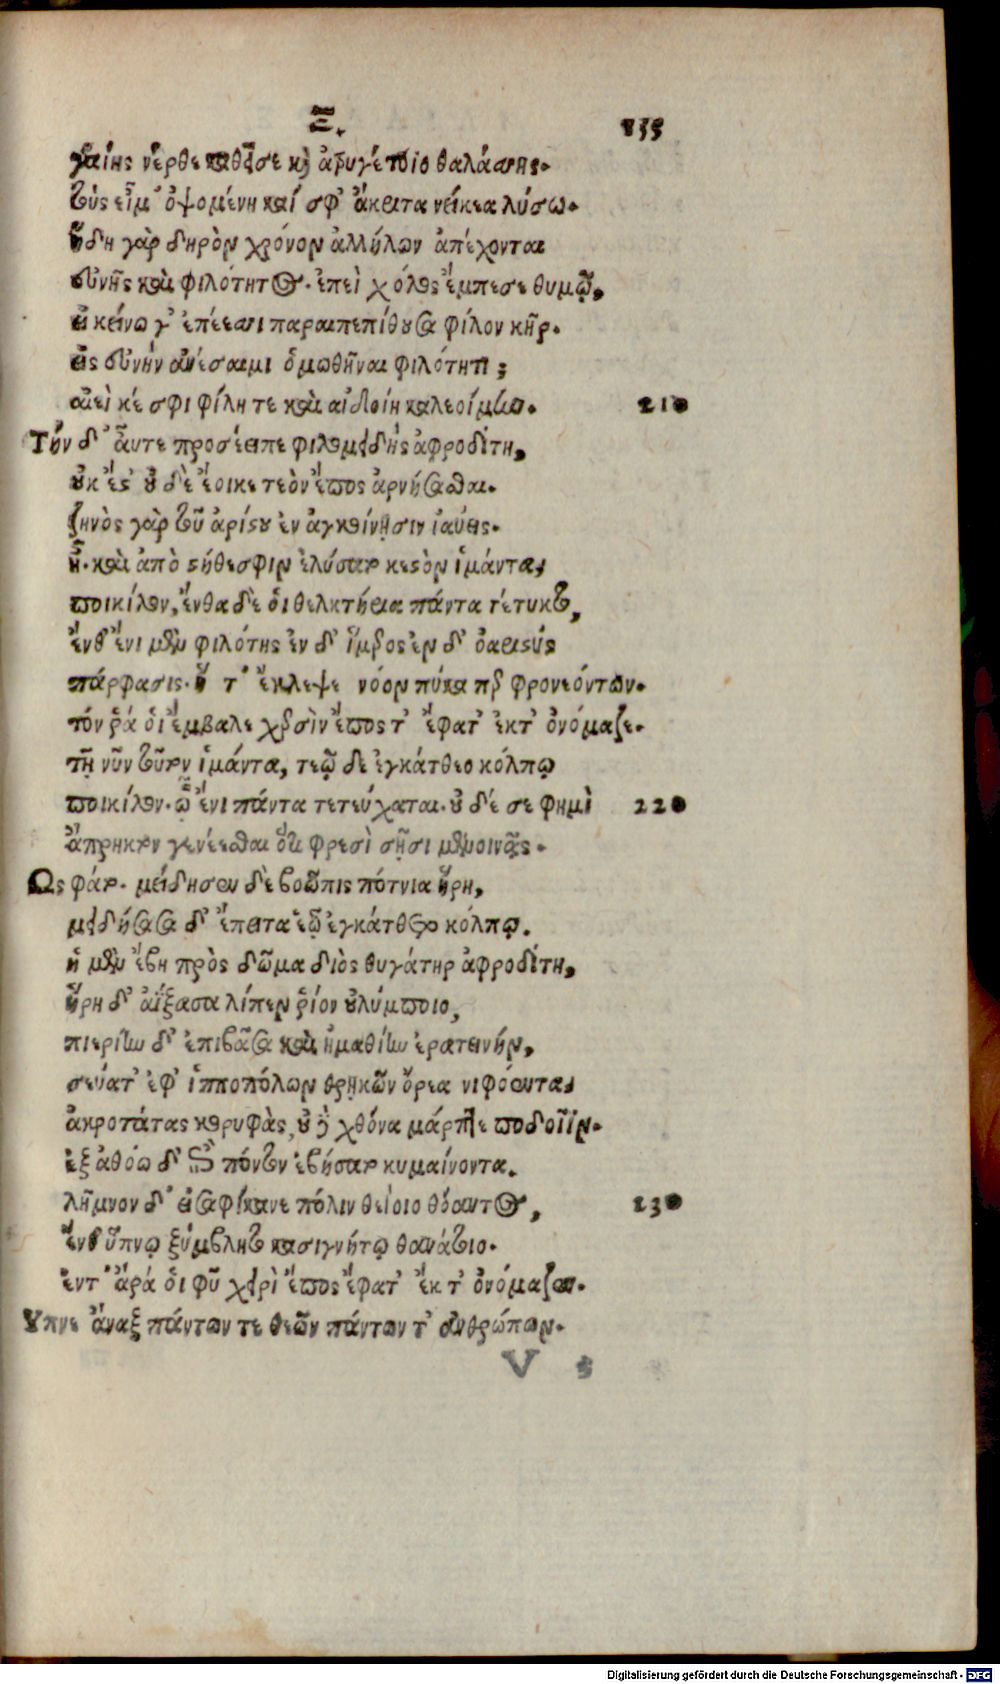 Ξ. 155
γαίης νέρθε καθεῖσε καὶ ἀτρυγέτοιο θαλάσσης.
τοὺς εἶμ' ὀψομένη καί σφ' ἄκριτα νείκεα λύσω.
ἤδη γὰρ δηρὸν χρόνον ἀλλήλων ἀπέχονται
εὐνῆς καὶ φιλότητος. ἐπεὶ χόλος ἔμπεσε θυμῷ,
εἰ κείνω γ' ἐπέεσσι παραιπεπίθουσα φίλον κῆρ.
εἰς εὐνὴν ἀνέσαιμι ὁμωθῆναι φιλότητι;
αἰεὶ κέ σφι φίλη τε καὶ αἰδοίη καλεοίμην. 210
Τὴν δ' αὖτε προσέειπε φιλομειδὴς ἀφροδίτη,
οὐκ ἔστ' οὐδὲ ἔοικε τεὸν ἔπος ἀρνήσασθαι.
ζηνὸς γὰρ τοῦ ἀρίστου ἐν ἀγκοίνῃσιν ἰαύεις.
ἦ. καὶ ἀπὸ στήθεσφιν ἐλύσατο κεστὸν ἱμάντα,
ποικίλον, ἔνθα δὲ οἱ θελκτήρια πάντα τέτυκτο,
ἔνθ' ἔνι μὲν φιλότης ἐν δ' ἵμερος ἐν δ' ὀαριστύς
πάρφασις. ἥ τ' ἔκλεψε νόον πύκα περ φρονεόντων.
τόν ῥά οἱ ἔμβαλε χερσὶν ἔπος τ' ἔφατ' ἐκτ' ὀνόμαζε.
τῆ νῦν τοῦτον ἱμάντα, τεῷ δε ἐγκάτθεο κόλπῳ
ποικίλον. ᾧ ἔνι πάντα τετεύχαται. οὐδέ σε φημὶ 220
ἄπρηκτον γενέεσθαι ὅτι φρεσὶ σῇσι μενοινᾷς.
Ως φάτο. μείδησεν δὲ βοῶπις πότνια ἥρη,
μειδήσασα δ' ἔπειτα ἑῷ ἐγκάτθετο κόλπῳ.
ἡ μὲν ἔβη πρὸς δῶμα διὸς θυγάτηρ ἀφροδίτη,
ἥρη δ' ἀΐξασα λίπεν ῥίον οὐλύμποιο,
πιερίην δ' ἐπιβᾶσα καὶ ἠμαθίην ἐρατεινήν,
σεύατ' ἐφ' ἱπποπόλων θρῃκῶν ὄρεα νιφόεντα,
ἀκροτάτας κορυφὰς, οὐδὲ χθόνα μάρπτε ποδοῖϊν.
ἐξ ἀθόω δ' ἐπὶ πόντον ἐβήσατο κυμαίνοντα.
λῆμνον δ' εἰσαφίκανε πόλιν θείοιο θόαντος, 230
ἔνθ' ὕπνῳ ξύμβλητο κασιγνήτῳ θανάτοιο.
ἔντ' ἄρά οἱ φῦ χειρὶ ἔπος ἔφατ' ἔκ τ' ὀνόμαζεν.
Υπνε ἄναξ πάντων τε θεῶν πάντων τ' ἀνθρώπων.
V 3
Digitalisierung gefördert durch die Deutsche Forschungsgemeinschaft - DFG